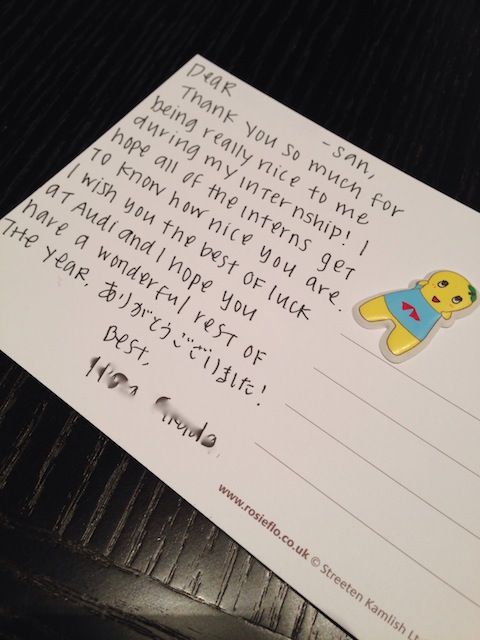 Dear -san,
Thank you so much for
being really nice to me
during my internship! I
hope all of the interns get
to know how nice you are.
I wish you the best of luck
at Audi and I hope you
have a wonderful rest of
the year. ありがとうございました!
Best,
www.rosieflo.co.uk © Streeten Kamlish